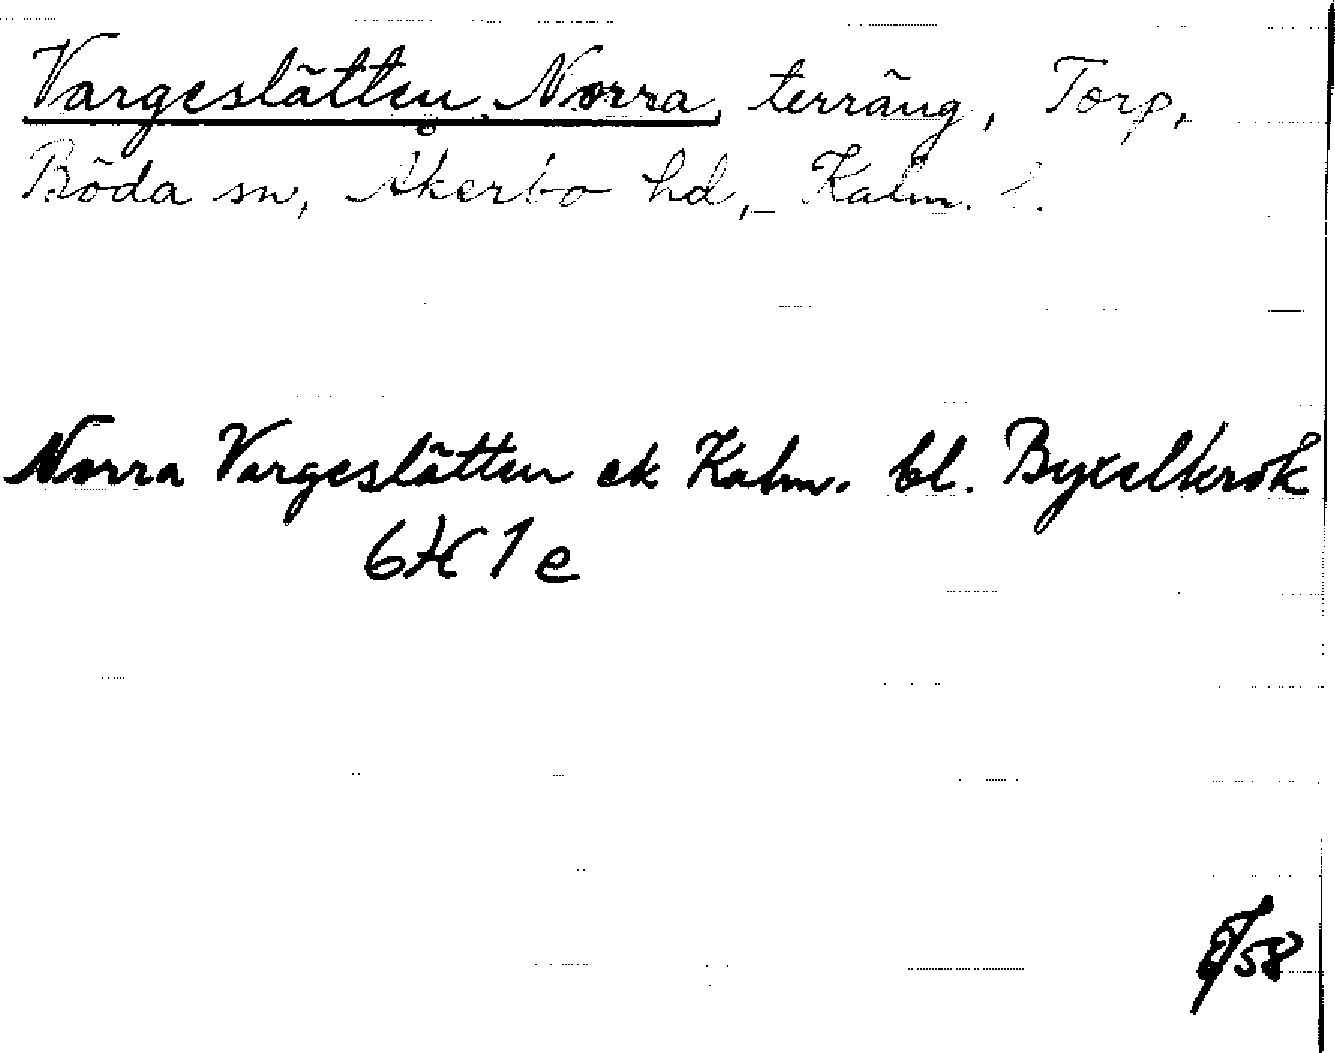 Vargeslätten, Norra, terräng, Torp,
Böda sn, Åkerbo hd, Kalm. l.
Norra Vargeslätten ek Kalm. bl. Byxelkrok
6H 1e
/58